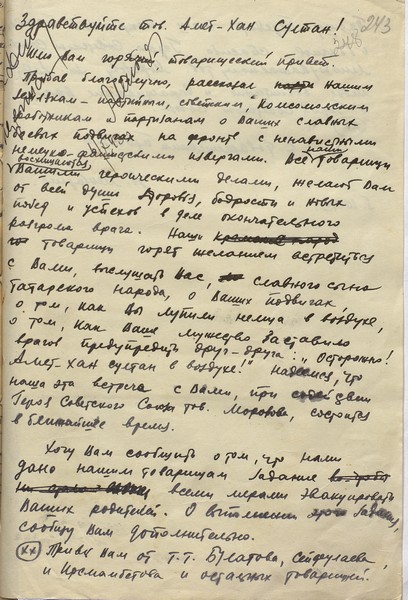 Здравствуйте тов. Амет-Хан Султан!
243
248
Шлю Вам горячий товарищеский привет.
Прибыл благополучно, рассказал Нашим
партийным, советским, Комсомольским
работникам и партизанам о Ваших славных
боевых подвигах на фронте с ненавистными
немецко-фашистскими извергами. Все наши товарищи
восхищаются
Вашими героическими делами, желают Вам
от всей души здоровья, бодрости и новых
побед и успехов в деле окончательного
разгрома врага. Наши
товарищи горят желанием встретиться
с Вами, выслушать Вас, славного сына
татарского народа, о Ваших подвигах
о том, как Вы лупили немца в воздухе,
о том, как Ваше мужество заставило
врагов предупредить друг-друга: "Осторожно!
Амет-Хан султан в воздухе!" Надеемся, что
наша эта встреча с Вами, при содействии
Героя Советского Союза тов. Морозова, состоится
в ближайшее время.
Хочу Вам сообщить о том, что нами
дано нашим товарищам задание
всеми мерами эвакуировать
Ваших родителей. О выполнении этого задания,
сообщу Вам дополнительно.
(xx) Привет Вам от т.т. Булатова, Сейфулаева,
и Исмамбетова и остальных товарищей.